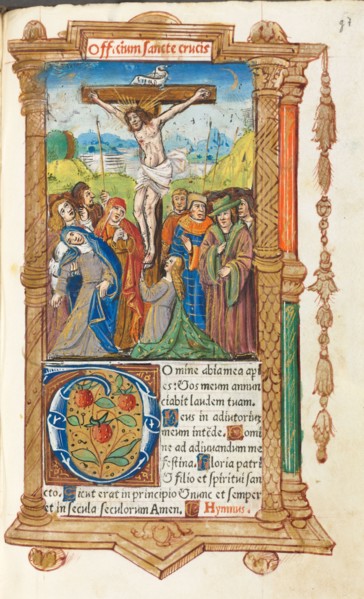 Officium sancte crucis
DOmine labia mea api
es: & os meum annun
ciabit laudem tuam.
Deus in adiutoriū
meum intēde. Domi
ne ad adiuuandum me
festina. Gloria patri
& filio et spiritui san
cto. Sicut erat in principio & nunc et semper
et in secula seculorum Amen. Hymnus.